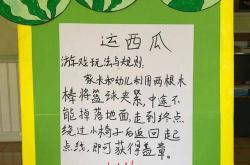 运西瓜
游戏玩法与规则:
家长和幼儿利用两根木
棒将篮球夹紧,中途不
能掉落地面,走到终点
绕过小椅子后返回起
点线,即可获得盖章。